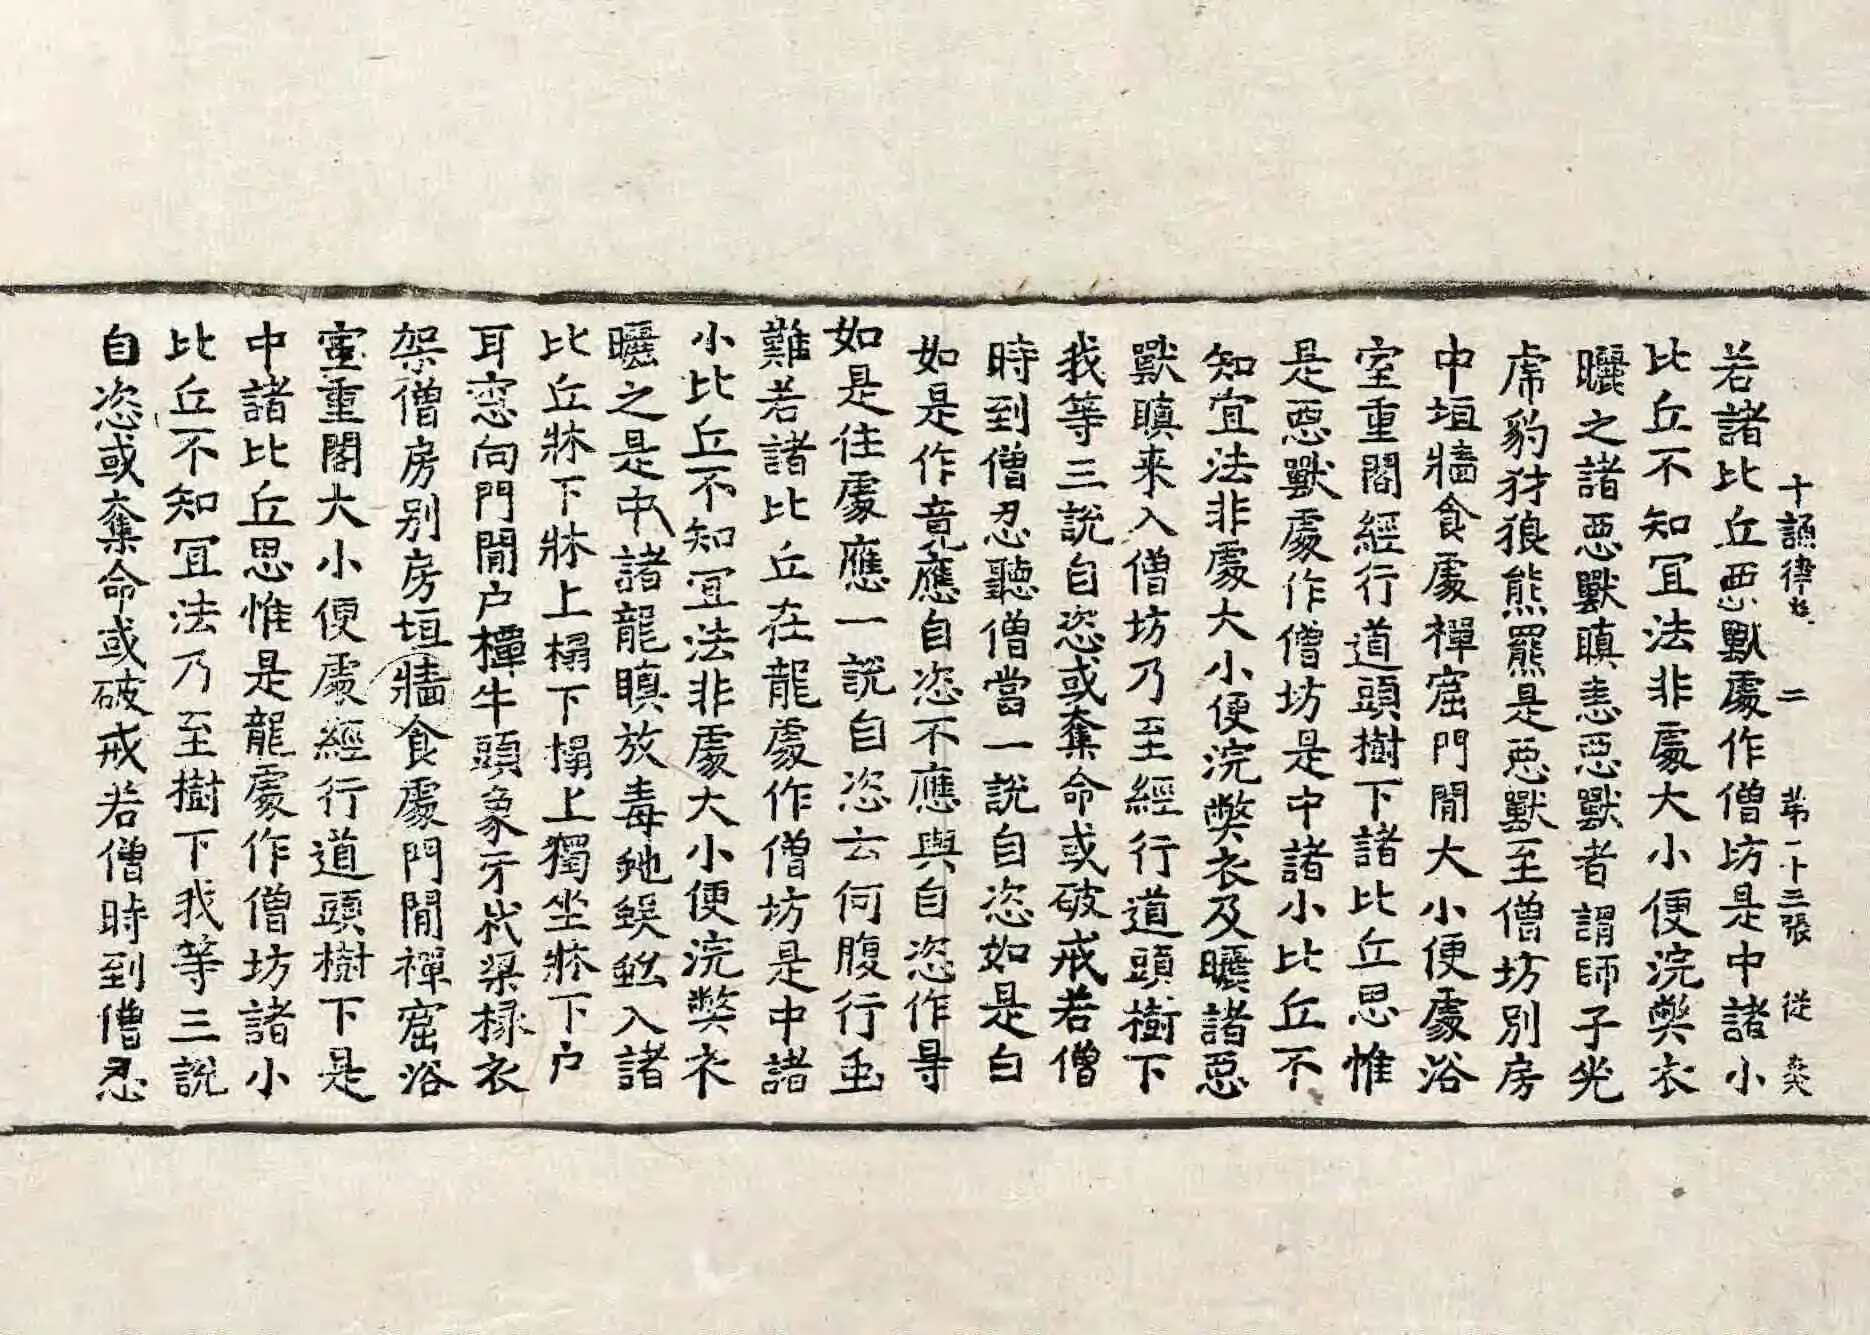 十誦律 二 第一十三張 從
若諸比丘惡獸處作僧坊是中諸小
比丘不知冝法非處大小便浣弊衣
曬之諸惡獸瞋恚惡獸者謂師子虎
豹犲狼熊羆是惡獸至僧坊別房
中垣牆食處禪窟門閒大小便處浴
室重閣經行道頭樹下諸比丘思惟
是惡獸處作僧坊是中諸小比丘不
知冝法非處大小便浣弊衣及曬諸惡
獸瞋来入僧坊乃至經行道頭樹下
我等三說自恣或奪命或破戒若僧
時到僧忍聽僧當一說自恣如是白
如是作竟應自恣不應與自恣作㝵
如是住處應一說自恣云何腹行虫
難若諸比丘在龍處作僧坊是中諸
小比丘不知冝法非處大小便浣弊衣
曬之是中諸龍瞋放毒虵蜈蚣入諸
比丘牀下牀上榻下榻上獨坐牀下户
耳窓向門閒户樿牛頭象牙杙梁椽衣
架僧房別房垣牆食處門閒禪窟浴
室重閣大小便處經行道頭樹下是
中諸比丘思惟是龍處作僧坊諸小
比丘不知冝法乃至樹下我等三說
自恣或奪命或破戒若僧時到僧忍